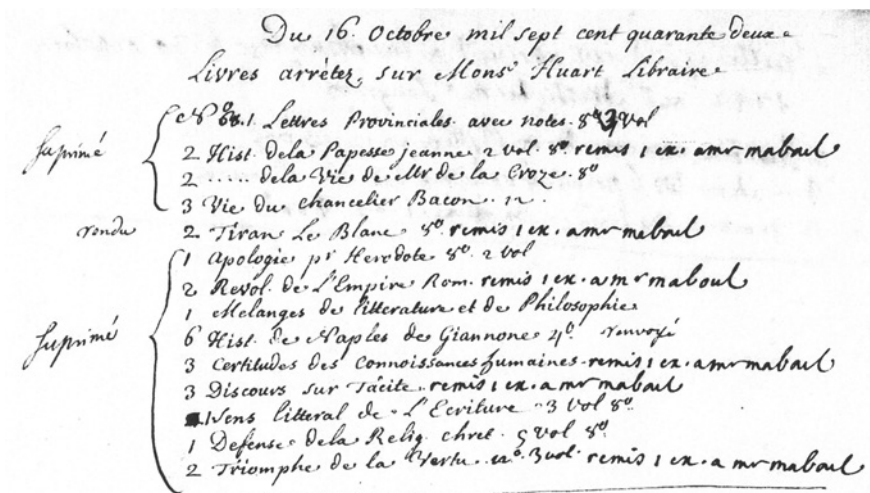 Du 16. Octobre mil sept cent quarante deux
Livres arrêtez sur Monsr Huart Libraire
1 Lettres Provinciales avec notes. 8o 3 vol
Suprimé
2 Hist. dela Papesse jeanne 2 vol. 8o. remis 1 ex. a mr maboul
2 ..... dela Vie de Mr de la Croze. 8o
3 Vie du chancelier Bacon. 12.
rendu 2 Tiran Le Blanc 8o. remis 1 ex. a mr meboul
1 Apologie pr Herodote 8o. 2 vol
2 Revol. de L'Empire Rom. remis 1 ex. a mr maboul
1 Melanges de litterature et de Philosophie
Suprimé
6 Hist. de Naples de Giannone 4o. renvoyé
3 Certitudes des Connoissances humaines. remis 1 ex. a mr maboul
3 Discours sur Tácite. remis 1 ex. a mr maboul
1 Sens litteral de L'Ecriture 3 vol 8o.
1 Defense dela Relig. chret. 5 vol 8o.
2 Triomphe de la Vertu. 12o. 3 vol. remis 1 ex. a mr maboul